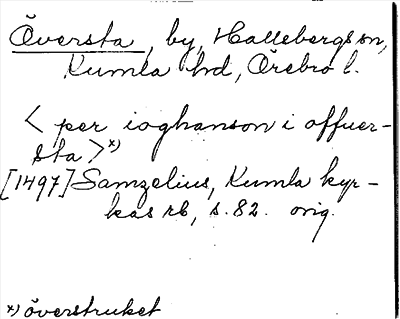 Översta, by, Hallebergs sn,
Kumla hd, Örebro l.
< per ioghanson i offuer-
sta >x)
[1497] Samzelius, Kumla kyr-
kas rb, s. 82. orig.
x) överstruket